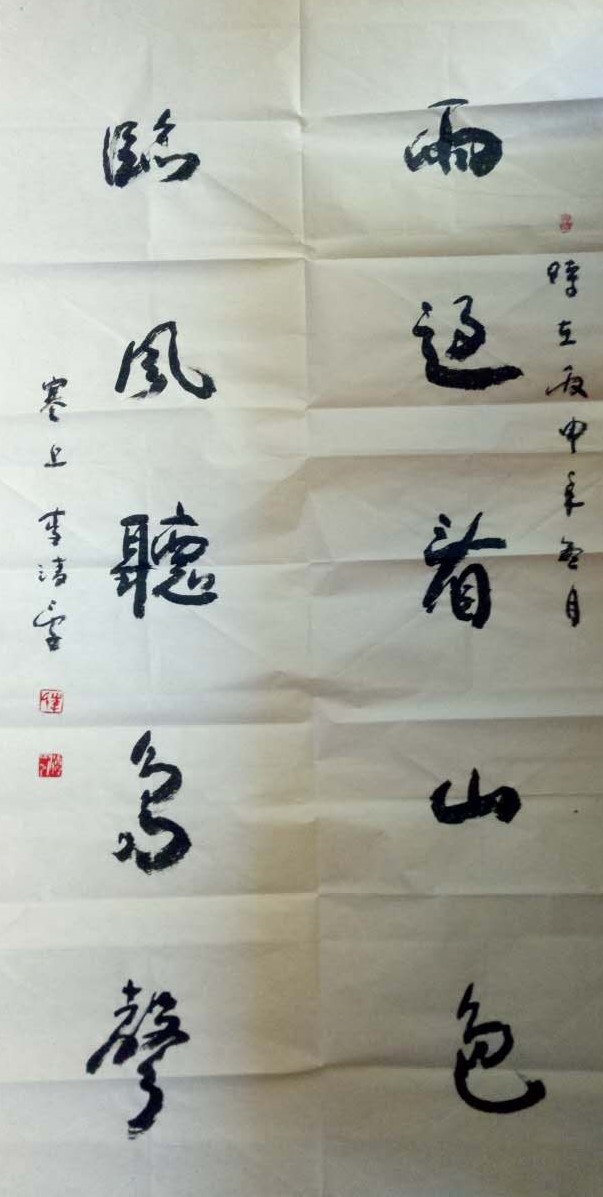 雨過看山色
時在丙申年春月
臨風聽鳥聲
塞上李清雲